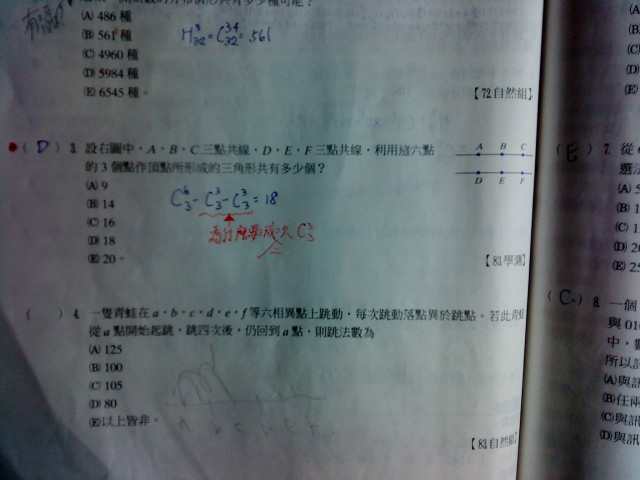 (A) 486 種
(B) 561 種
(C) 4960 種
(D) 5984 種
(E) 6545 種。
H³₃₂=C³⁴₃₂=561
【72自然組】
(D) 3. 設右圖中,A、B、C三點共線,D、E、F三點共線,利用這六點
的3個點作頂點所形成的三角形共有多少個?
(A) 9
(B) 14
(C) 16
(D) 18
(E) 20。
C⁶₃-C³₃-C³₃=18
A B C
D E F
【83學測】
( ) 4. 一隻青蛙在a、b、c、d、e、f等六相異點上跳動,每次跳動落點異於跳點。若此青蛙
從a點開始起跳,跳四次後,仍回到a點,則跳法數為
(A) 125
(B) 100
(C) 105
(D) 80
(E)以上皆非。
【83自然組】
(A)
(B)
(C)
(D)
(E)
(E) 7. 從
選法
(A) 5
(B) 1
(C) 1
(D) 20
(E) 25
(C) 8. 一個
與01
中,
所以
(A)與訊
(B)任兩
(C)與訊
(D)與訊